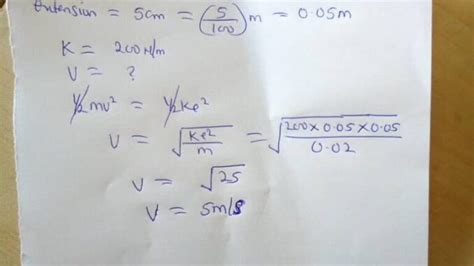 extension = 5cm = (5/100)m = 0.05m
K = 200N/m
V = ?
½mv² = ½ke²
V = √(ke²/m) = √(200×0.05×0.05/0.02)
V = √25
V = 5m/s